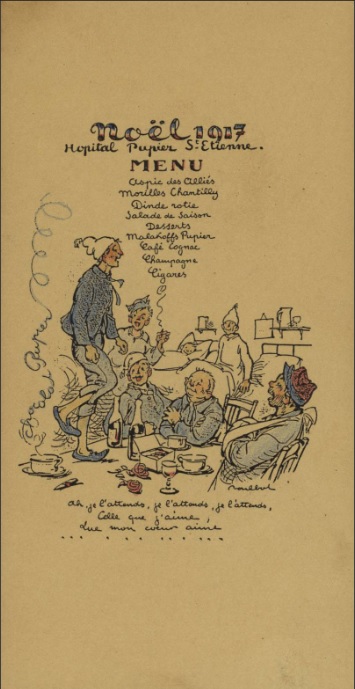 Noël 1917
Hopital Pupier St Etienne.
MENU
Aspic des Alliés
Morilles Chantilly
Dinde rotie
Salade de Saison
Desserts
Malakoffs Pupier
Café Cognac
Champagne
Cigares
Chocolat Pupier
Poulbot
Ah, je l'attends, je l'attends, je l'attends,
Celle que j'aime,
Que mon cœur aime
.................